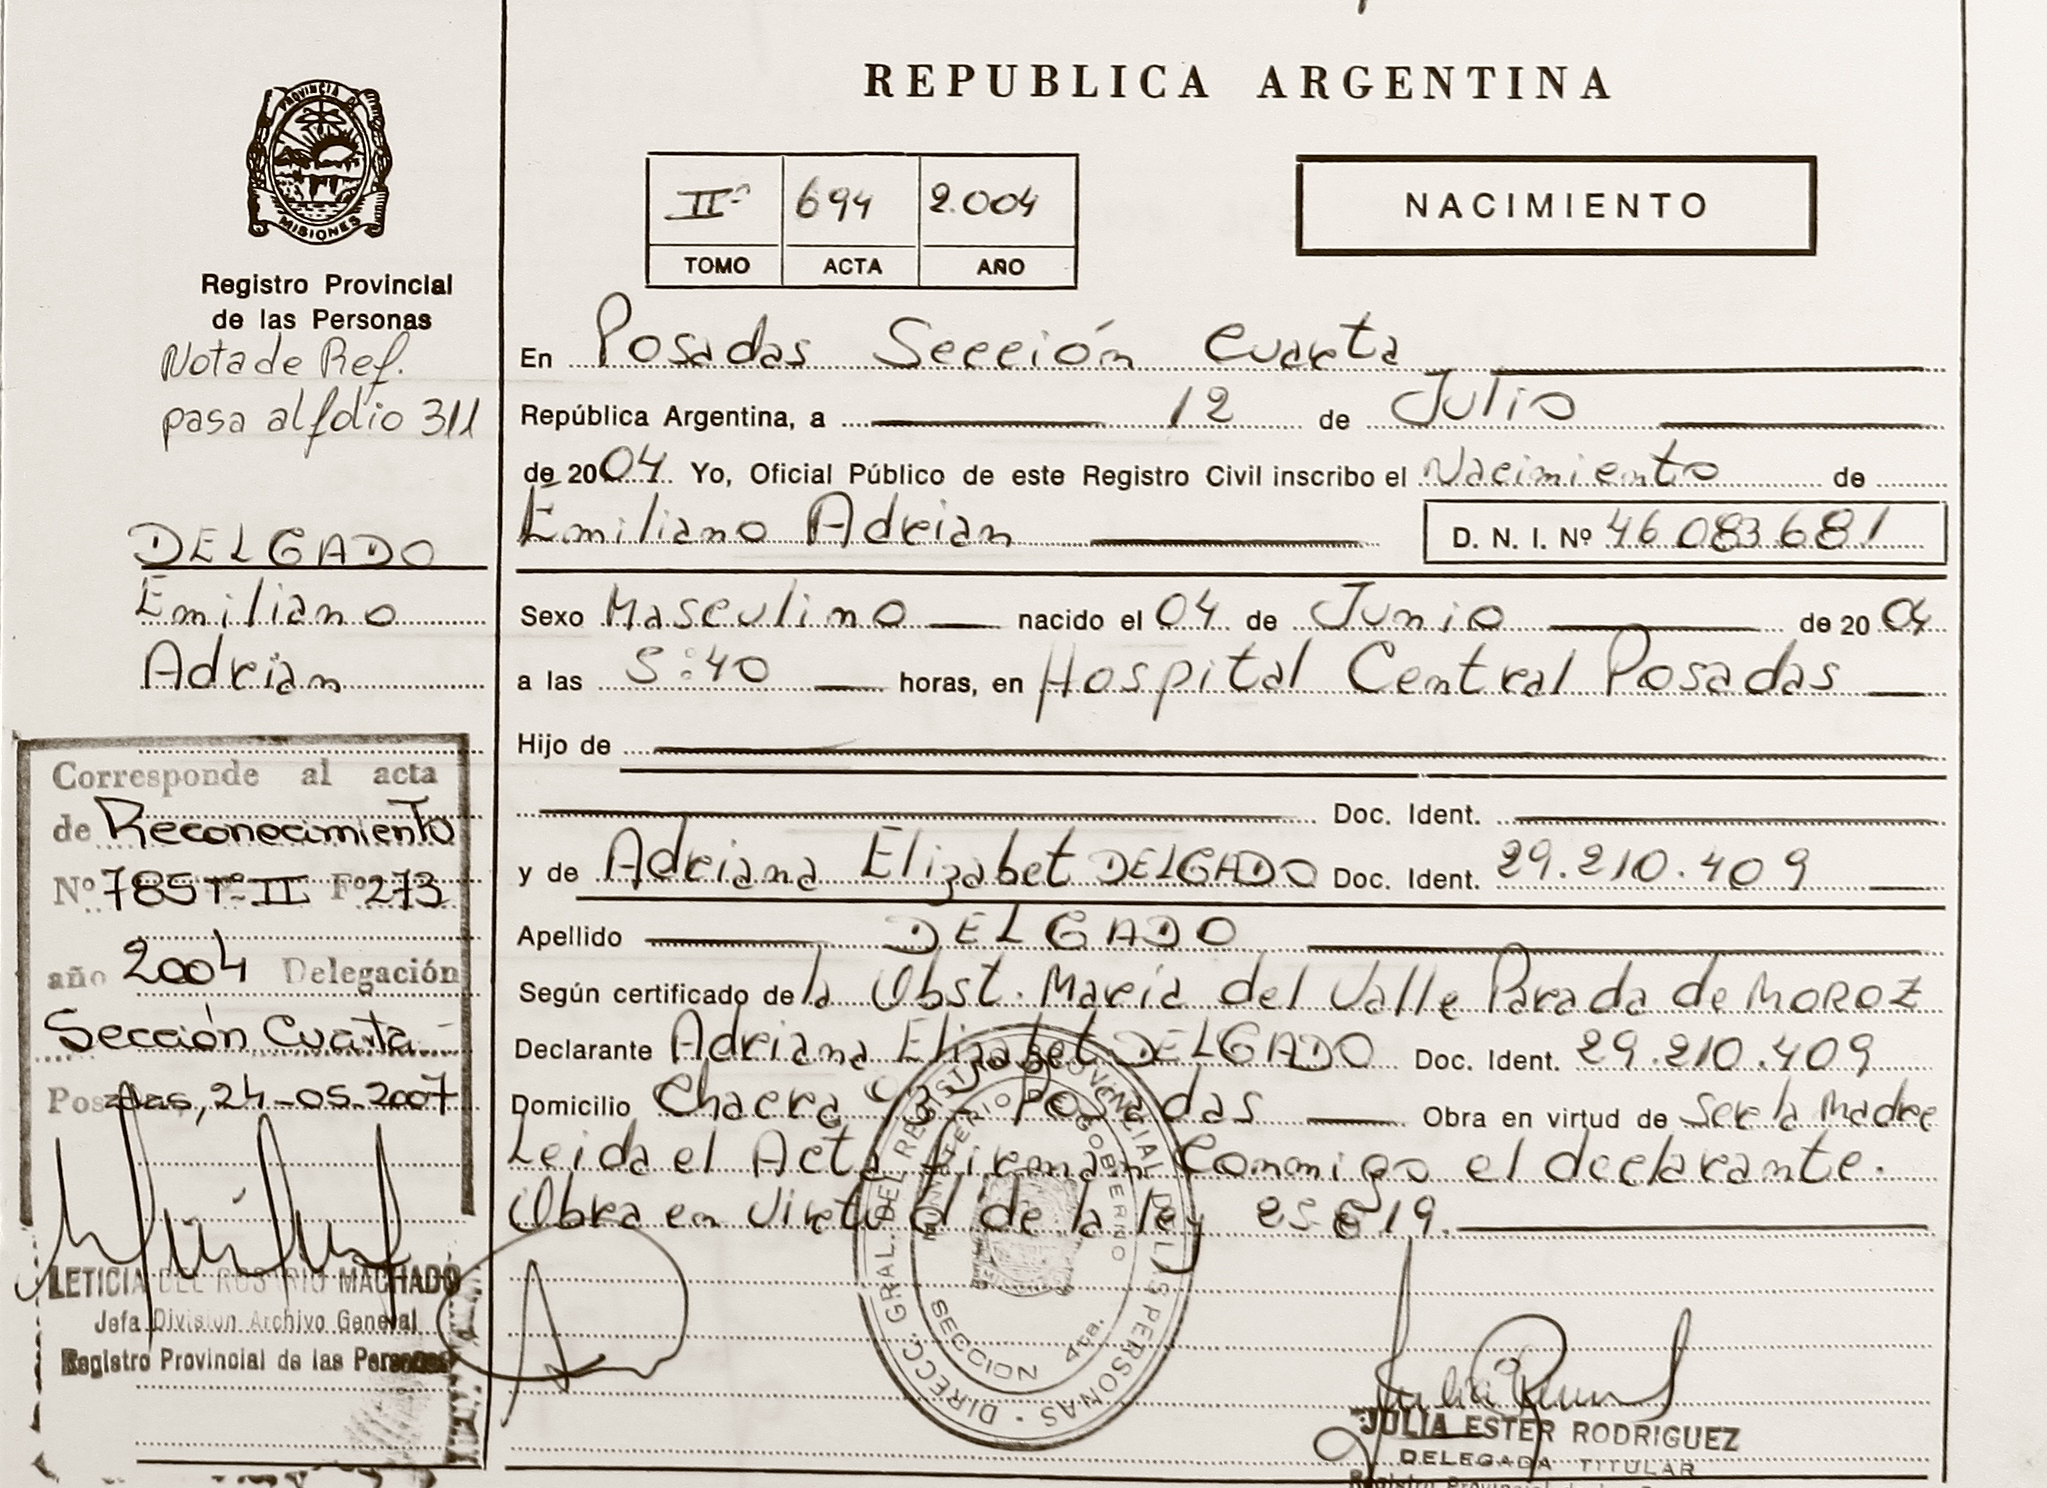 PROVINCIA D
MISIONES
Registro Provincial
de las Personas
Nota de Ref.
pasa al folio 311
DELGADO
Emiliano
Adrian
Corresponde al acta
de Reconocimiento
Nº 785 Tº II Fº 273
año 2004 Delegación
Sección Cuarta
Posadas, 24-05-2007
LETICIA DEL ROSARIO MACHADO
Jefa Division Archivo General
Registro Provincial de las Personas
REPUBLICA ARGENTINA
IIº 694 2.004
TOMO ACTA AÑO
NACIMIENTO
En Posadas Sección Cuarta
República Argentina, a 12 de Julio
de 2004 Yo, Oficial Público de este Registro Civil inscribo el Nacimiento de
Emiliano Adrian D. N. I. Nº 46083681
Sexo Masculino nacido el 04 de Junio de 2004
a las 5:40 horas, en Hospital Central Posadas
Hijo de
Doc. Ident.
y de Adriana Elizabet DELGADO Doc. Ident. 29.210.409
Apellido DELGADO
Según certificado de la Obst. María del Valle Parada de MOROZ
Declarante Adriana Elizabet DELGADO Doc. Ident. 29.210.409
Domicilio Chacra 93 Posadas Obra en virtud de Ser la Madre
Leida el Acta firman Conmigo el declarante.
Obra en Virtud de la ley 25819.
DIRECC. GRAL. DEL REGISTRO PROVINCIAL DE LAS PERSONAS
MINISTERIO DE GOBIERNO
SECCION 4ta.
JULIA ESTER RODRIGUEZ
DELEGADA TITULAR
Registro Provincial de las